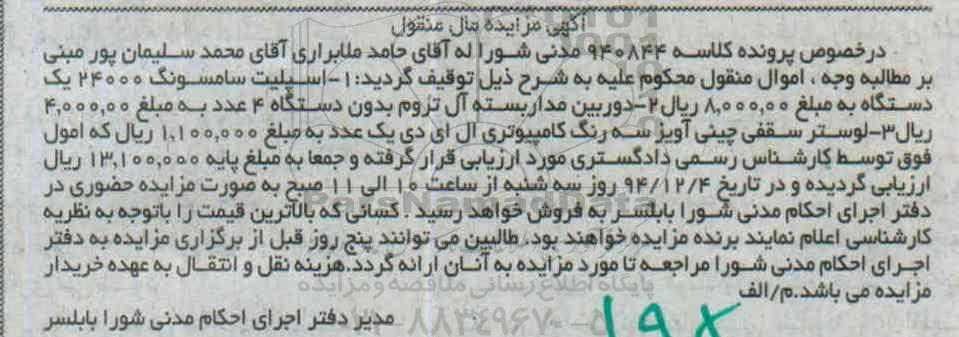 آگهی مزایده مال منقول
درخصوص پرونده کلاسه ۹۴۰۸۴۴ مدنی شورا له آقای حامد ملابراری آقای محمد سلیمان پور مبنی
بر مطالبه وجه ، اموال منقول محکوم علیه به شرح ذیل توقیف گردید:۱-اسپلیت سامسونگ ۲۴۰۰۰ یک
دستگاه به مبلغ ۸,۰۰۰,۰۰ ریال۲-دوربین مداربسته آل تزوم بدون دستگاه ۴ عدد به مبلغ ۴,۰۰۰,۰۰
ریال۳-لوستر سقفی چینی آویز سه رنگ کامپیوتری ال ای دی یک عدد به مبلغ ۱,۱۰۰,۰۰۰ ریال که امول
فوق توسط کارشناس رسمی دادگستری مورد ارزیابی قرار گرفته و جمعا به مبلغ پایه ۱۳,۱۰۰,۰۰۰ ریال
ارزیابی گردیده و در تاریخ ۹۴/۱۲/۴ روز سه شنبه از ساعت ۱۰ الی ۱۱ صبح به صورت مزایده حضوری در
دفتر اجرای احکام مدنی شورا بابلسر به فروش خواهد رسید . کسانی که بالاترین قیمت را باتوجه به نظریه
کارشناسی اعلام نمایند برنده مزایده خواهند بود. طالبین می توانند پنج روز قبل از برگزاری مزایده به دفتر
اجرای احکام مدنی شورا مراجعه تا مورد مزایده به آنان ارائه گردد.هزینه نقل و انتقال به عهده خریدار
مزایده می باشد.م/الف
۱۹۸
مدیر دفتر اجرای احکام مدنی شورا بابلسر
ParsNamadData
پایگاه اطلاع رسانی مناقصه و مزایده